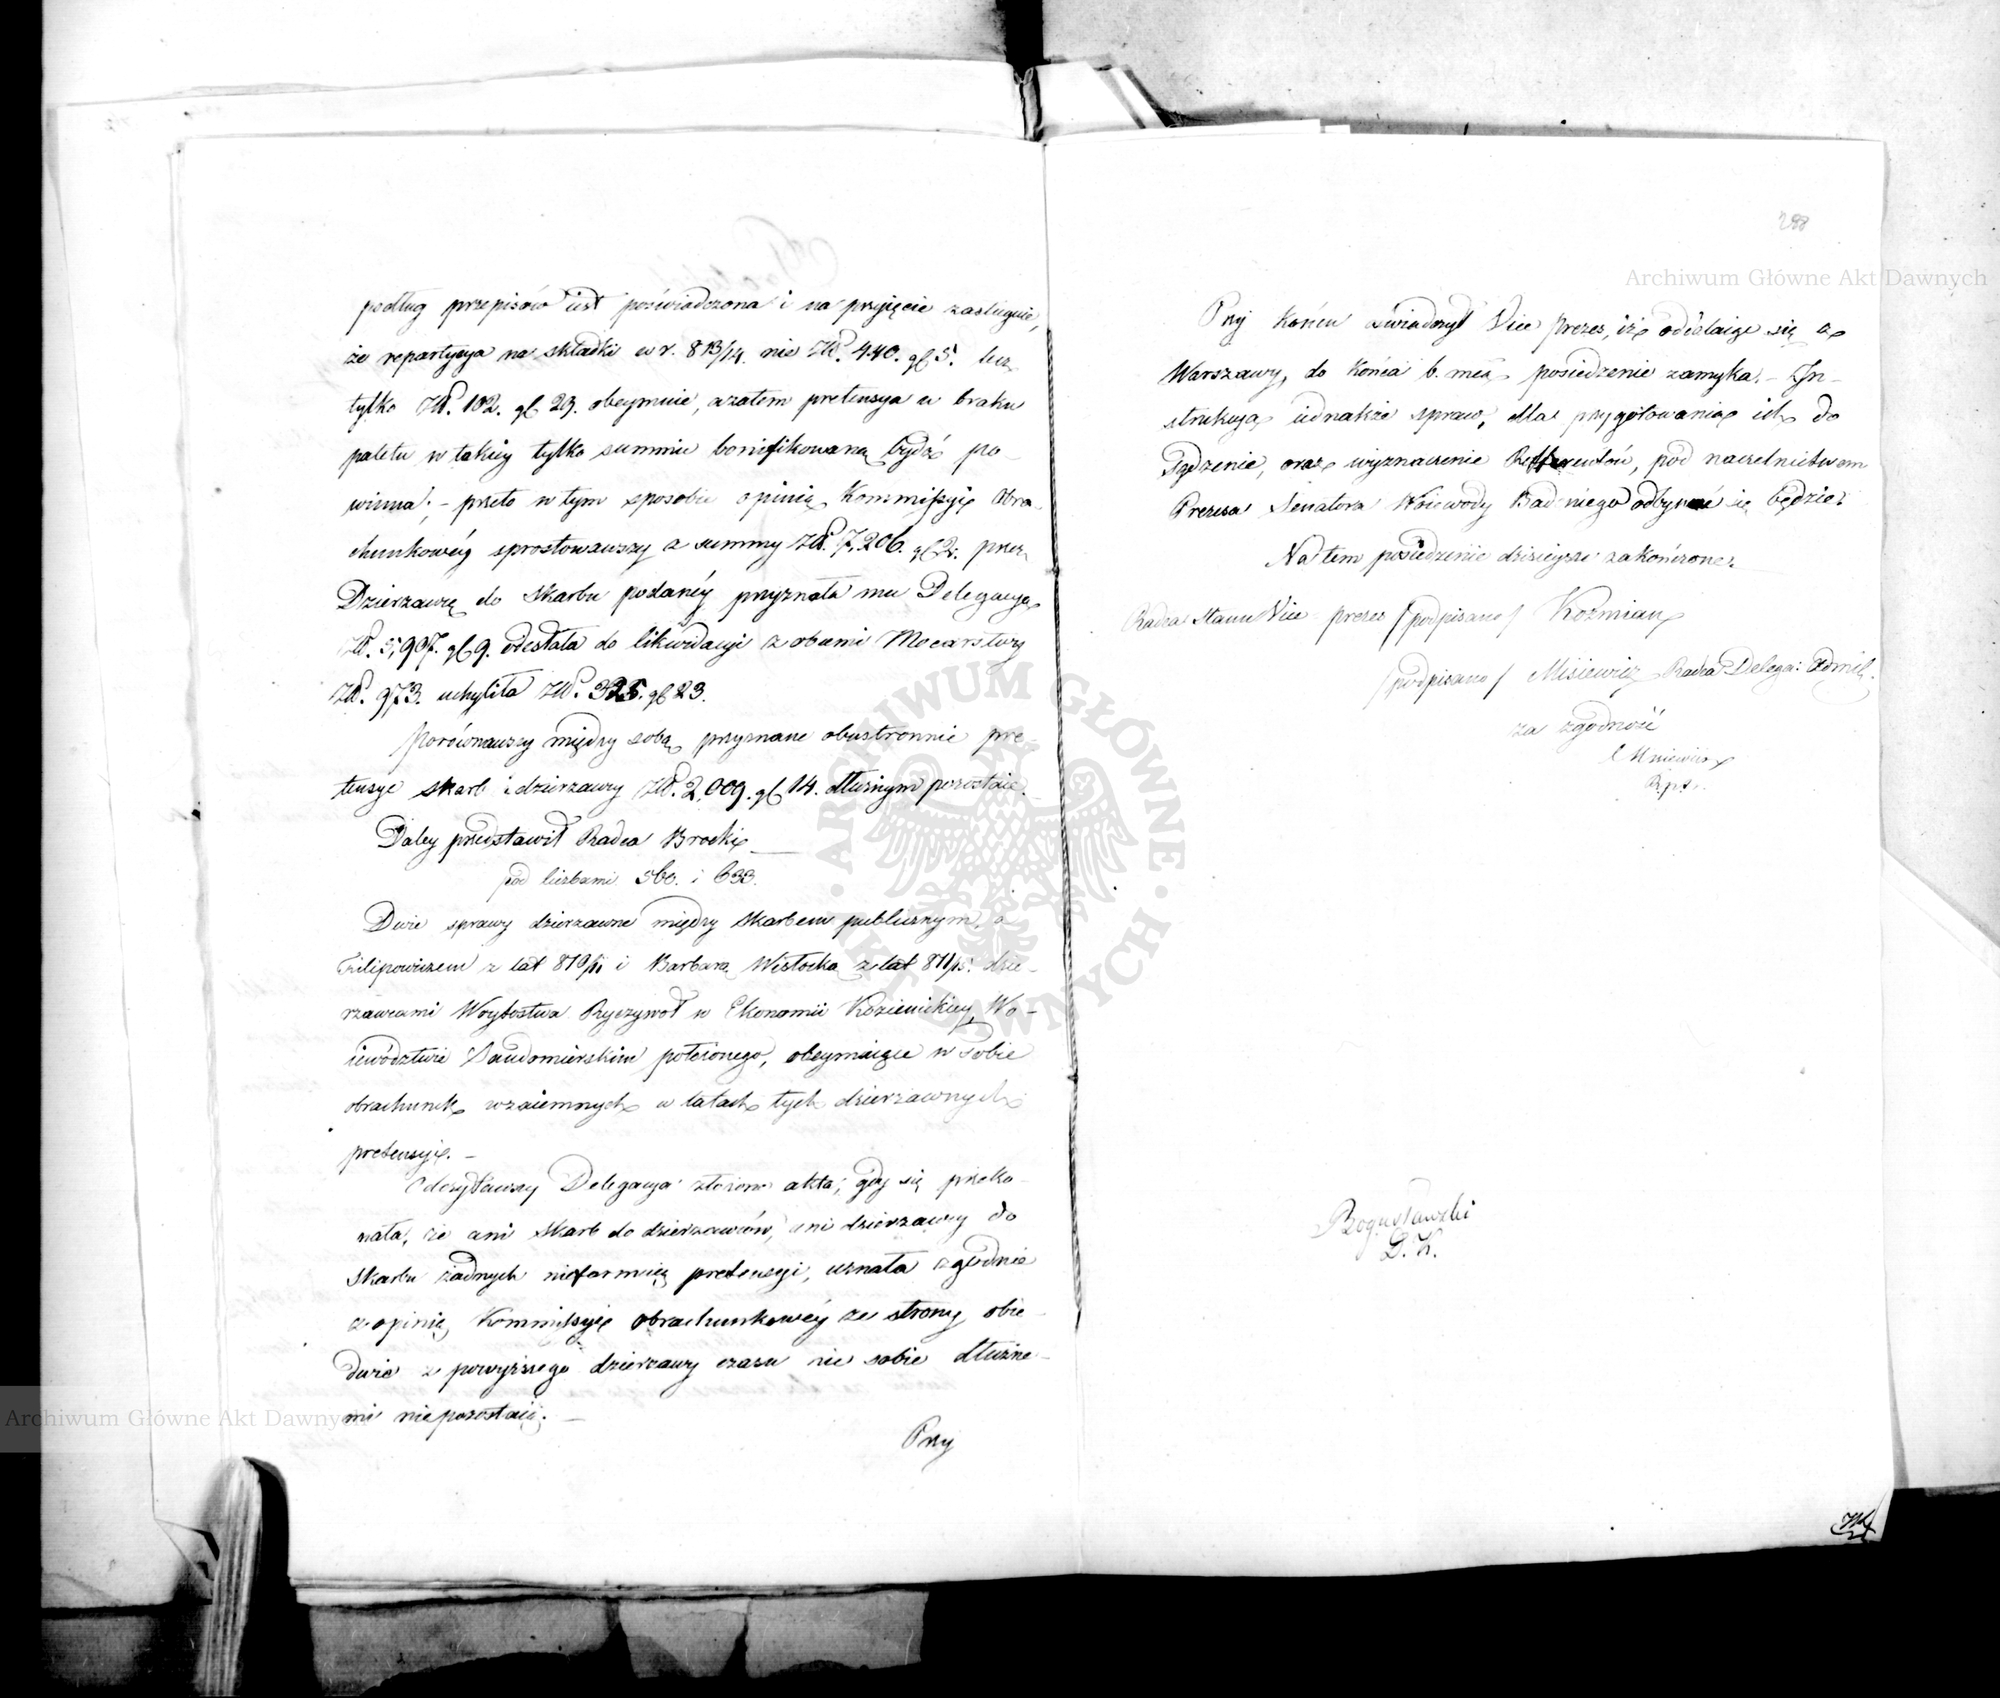 podług przepisów iest poświadczona i na przyięcie zasługuie,
że repartycya na składki w r. 813/14. nie ZłP. 440. gl 5. lecz
tylko ZłP. 102. gl 29. obeymuie, azatem pretensya w braku
paletu w takiey tylko summie bonifikowaną bydź po-
winna; – przeto w tym sposobie opinią Kommissyi Obra-
chunkowéy sprostowawszy z summy ZłP. 7,206. gl 2. przez
Dzierzawcę do Skarbu podanéy przyznała mu Delegacya
ZłP. 5,907. gl 9. odesłała do likwidacyi z obcemi Mocarstwy
ZłP. 973. uchyliła ZłP. 325. gl 23.
Porównawszy między sobą przyznane obustronnie pre-
tensye skarb i dzierzawcy ZłP. 2,009. gl 14. dłużnym pozostaie.
Daley przedstawił Radca Brocki
pod liczbami 560. i 633.
Dwie sprawy dzierzawne między Skarbem publicznym, a
Filipowiczem z lat 810/11 i Barbarą Wisłocką z lat 811/15. dzie-
rzawcami Woytostwa Ryczywoł w Ekonomii Kozienickiey, Wo-
iewództwie Sandomierskim położonego, obeymuiące w sobie
obrachunek wzaiemnych w latach tych dzierzawnych
pretensyi. –
Odczytawszy Delegacya złożone akta, gdy się przeko-
nała, że ani Skarb do dzierzawców, ani dzierzawcy do
Skarbu żadnych nieformuią pretensyi, uznała zgodnie
z opinią Kommissyi obrachunkowéy że strony obie-
dwie z powyższego dzierzawy czasu nic sobie dłużne-
mi niepozostaią. –
Przy
298
Archiwum Główne Akt Dawnych
Przy końcu oświadczył Vice prezes, iż oddalaiąc się z
Warszawy, do końca b. mca posiedzenie zamyka. – In-
strukcya iednakże spraw, dla przygotowania ich do
Sądzenia, oraz wyznaczenie Refferentów, pod naczelnictwem
Prezesa Senatora Woiewody Badeniego odbywać się będzie.
Na tem posiedzenie dzisieysze zakończone.
Radca Stanu Vice prezes /podpisano/ Koźmian
/podpisano/ Misiewicz Radca Delega: Admi.
za zgodność
Bogusławski
D. K.
ARCHIWUM GŁÓWNE AKT DAWNYCH
Archiwum Główne Akt Dawnych